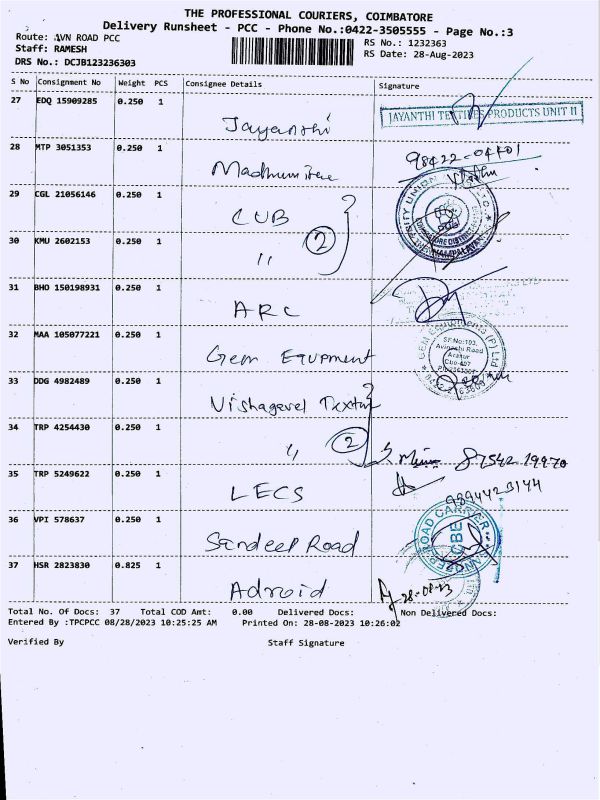 THE PROFESSIONAL COURIERS, COIMBATORE
Delivery Runsheet - PCC - Phone No.:0422-3505555 - Page No.:3
Route: AVN ROAD PCC
RS No.: 1232363
Staff: RAMESH
RS Date: 28-Aug-2023
DRS No.: DCJB123236303
S No Consignment No Weight PCS Consignee Details Signature
27 EDQ 15909285 0.250 1 Jayanthi JAYANTHI TEXTILES PRODUCTS UNIT II
28 MTP 3051353 0.250 1
98422-04401
29 CGL 21056146 0.250 1 CUB
2
30 KMU 2602153 0.250 1 "
31 BHO 150198931 0.250 1 ARC
32 MAA 105077221 0.250 1 Gem Equpment
GEM Equipments (P) Ltd
SF.No:103,
Avinashi Road
Arasur
33 DDG 4982489 0.250 1 Vishagavel
34 TRP 4254430 0.250 1 " 2 87542 19970
35 TRP 5249622 0.250 1 LECS 9894423144
36 VPI 578637 0.250 1 Sandeep Road
ROAD CARRIER
CBE
37 HSR 2823830 0.825 1 Adroid 28-08-23
Total No. Of Docs: 37 Total COD Amt: 0.00 Delivered Docs: Non Delivered Docs:
Entered By :TPCPCC 08/28/2023 10:25:25 AM Printed On: 28-08-2023 10:26:02
Verified By Staff Signature